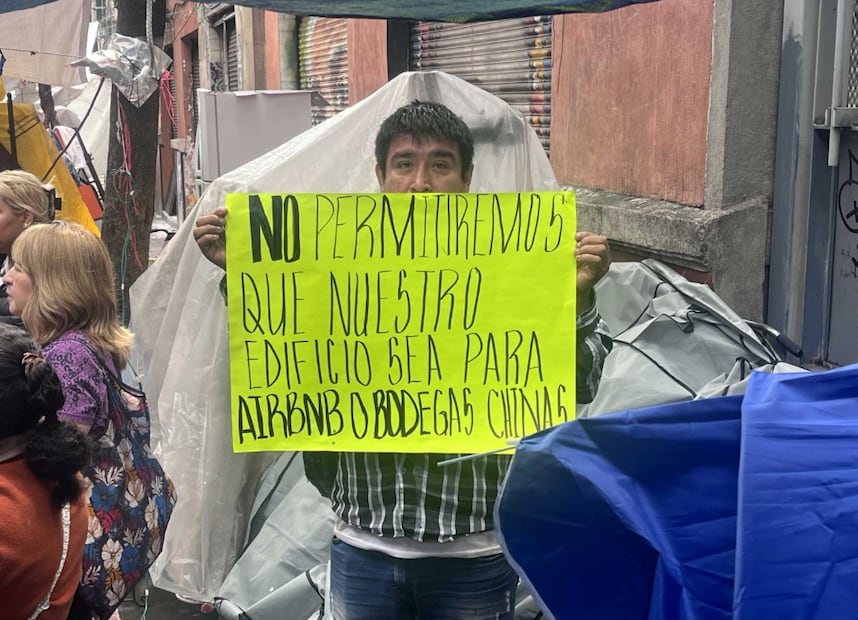 NO PERMITIREMOS
QUE NUESTRO
EDIFICIO SEA PARA
AIRBNB O BODEGAS CHINAS